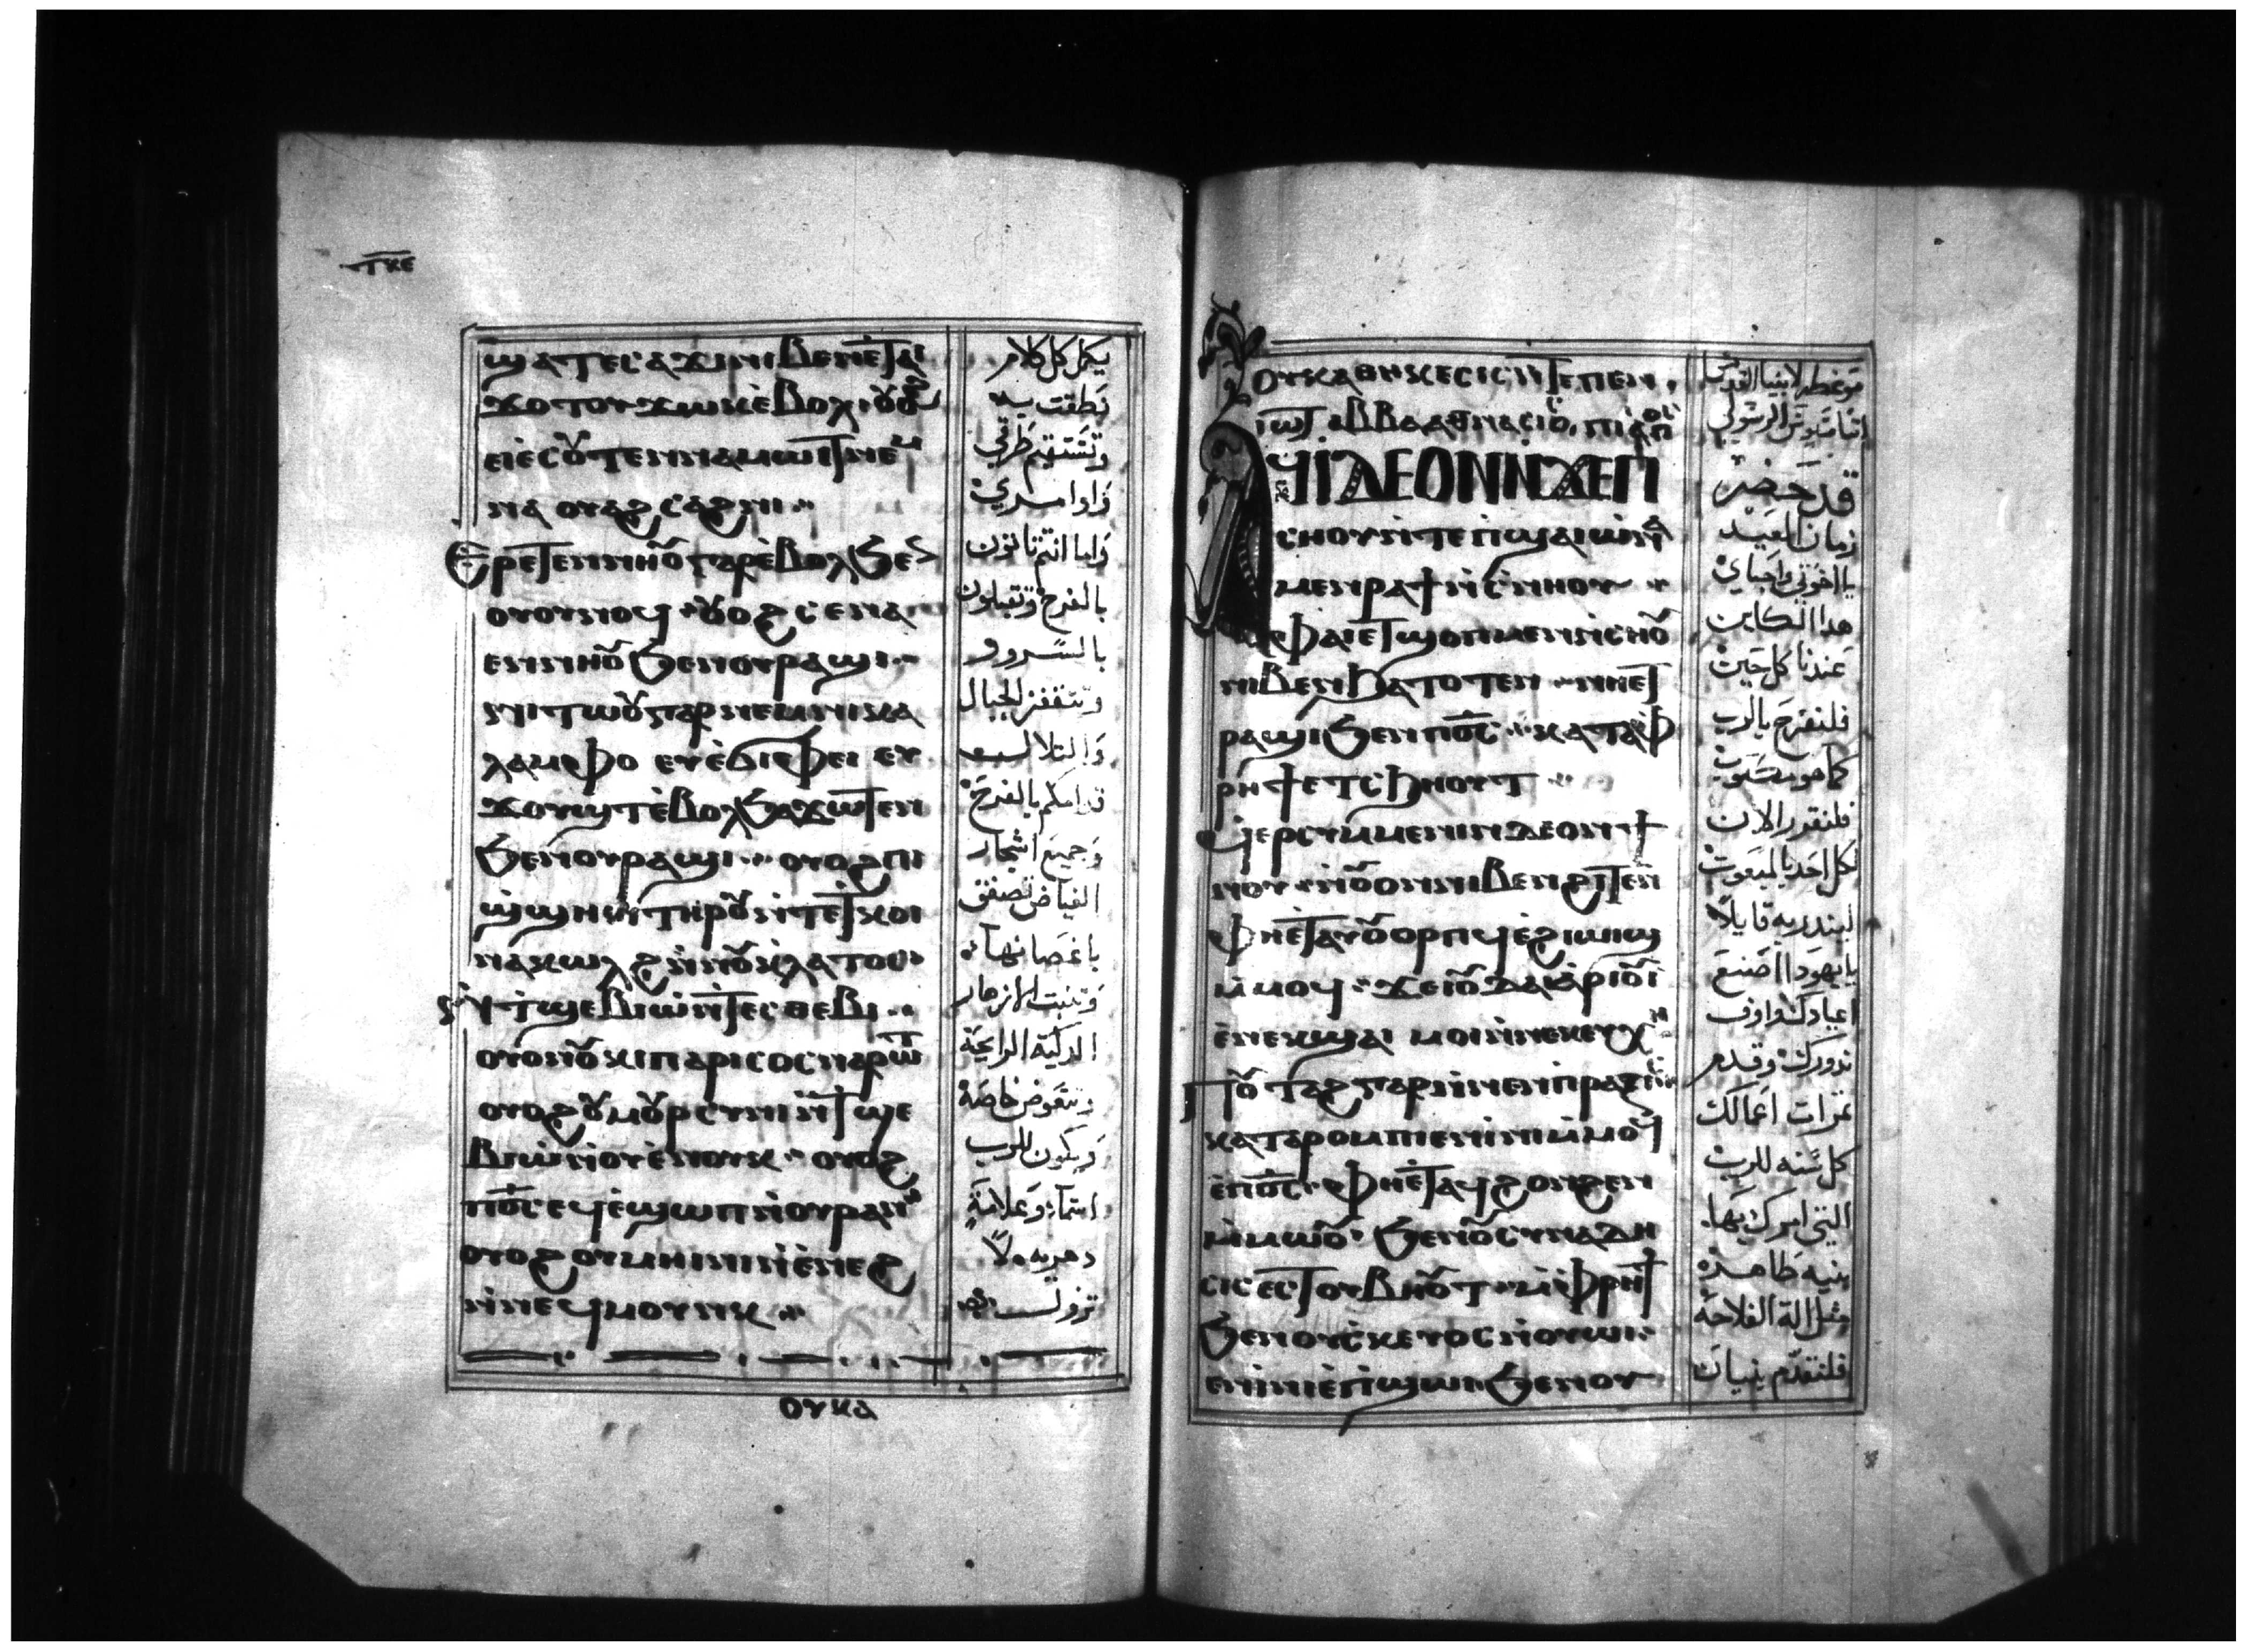 ⲧⲕⲉ
ϣⲁⲧⲉⲥⲁϫⲓ ⲛⲓⲃⲉⲛ ⲉ̀ⲧⲁⲓ
ϫⲟⲧⲟⲩ ϫⲱⲕ ⲉ̀ⲃⲟⲗ ⲟⲩⲟϩ
ⲉⲓⲉ̀ⲥⲟⲩⲧⲉⲛ ⲛⲁⲙⲱⲓⲧ ⲛⲉⲙ
ⲛⲁ ⲟⲩⲁϩⲥⲁϩⲛⲓ
ⲉⲣⲉⲧⲉⲛⲛⲏⲟⲩ ⲅⲁⲣ ⲉ̀ⲃⲟⲗ ϧⲉⲛ
ⲟⲩⲟⲩⲛⲟϥ ⲟⲩⲟϩ ⲥⲉⲛⲁ
ⲉⲛⲛⲏⲟⲩ ϧⲉⲛ ⲟⲩⲣⲁϣⲓ
ⲛⲓⲧⲱⲟⲩ ⲅⲁⲣ ⲛⲉⲙ ⲛⲓⲕⲁ
ⲗⲁⲙⲫⲟ ⲉⲩⲉ̀ϭⲓⲫⲉⲓ ⲉⲩ
ϫⲟⲩϣⲧ ⲉ̀ⲃⲟⲗ ϧⲁϫⲱⲧⲉⲛ
ϧⲉⲛ ⲟⲩⲣⲁϣⲓ ⲟⲩⲟϩ ⲛⲓ
ϣϣⲏⲛ ⲧⲏⲣⲟⲩ ⲛ̀ⲧⲉ ⲧⲕⲟⲓ
ⲛⲁⲕⲱⲗϩ ⲛ̀ⲛⲟⲩⲕⲗⲁⲧⲟⲥ
ⲛ̀ϯϣⲉⲃⲓⲱ ⲛ̀ⲧⲉⲥⲑⲉⲃⲓ
ⲟⲩⲟⲛⲟⲩⲕⲓⲡⲁⲣⲓⲥⲟⲥ ⲛⲁⲣⲱⲧ
ⲟⲩⲟϩ ⲟⲩⲙⲟⲩⲣⲥⲩⲛⲏ ⲛ̀ϯϣⲉ
ⲃⲓⲱ ⲛ̀ⲟⲩⲉ̀ⲛⲟⲩⲕ ⲟⲩⲟϩ
ⲡ⳪ ⲉϥⲉ̀ϣⲱⲡⲓ ⲛ̀ⲟⲩⲣⲁⲛ
ⲟⲩⲟϩ ⲟⲩⲙⲏⲓⲛⲓ ⲛ̀ⲉ̀ⲛⲉϩ
ⲛ̀ⲛⲉϥⲙⲟⲩⲛⲕ
ⲟⲩⲕⲁ
يكمل كل كلام
نطقت به
وتستقيم طرقي
واوامري
وايا انتم تاتون
بالفرح وتقبلون
بالسرور
وتتقفز الجبال
والتلال
قدامكم بالفرح
وجميع اشجار
الغياض تصفق
باغصانها
وتنبت الازهار
الذكية الرايحة
وتتعوض خاصة
ويكون للرب
اسما وعلامة
دهريه ولا
تزول
ⲟⲩⲕⲁⲑⲏⲕⲉⲥⲓⲥ ⲛ̀ⲧⲉ ⲡⲉⲛ
ⲓⲱⲧ ⲁⲃⲃⲁ ⲁⲑⲁⲛⲁⲥⲓⲟⲥ ⲡⲓⲁⲡⲟⲥ
ϤⲒⲆⲈⲞⲚ ⲚϪⲈⲠⲒ
ⲥⲏⲟⲩ ⲛ̀ⲧⲉ ⲡⲓϣⲁⲓ ⲱ̀ ⲛⲁ
ⲙⲉⲛⲣⲁϯ ⲛ̀ⲥⲛⲏⲟⲩ
ⲫⲁⲓ ⲉⲧϣⲟⲡ ⲙⲉⲛ ⲛ̀ⲥⲏⲟⲩ
ⲛⲓⲃⲉⲛ ϧⲁⲧⲟⲧⲉⲛ
ⲣⲁϣⲓ ϧⲉⲛ ⲡ⳪ ⲕⲁⲧⲁⲫ
ⲣⲏϯ ⲉⲧⲥϧⲏⲟⲩⲧ
ϥⲉⲣⲥⲩⲙⲙⲉⲛⲓⲛ ⲇⲉⲟⲛ ϯ
ⲛⲟⲩ ⲛ̀ⲟⲩⲟⲛ ⲛⲓⲃⲉⲛ ϩⲓⲧⲉⲛ
ⲫⲏⲉ̀ⲧⲁⲩⲟⲩⲟⲣⲡϥ ⲉ̀ϩⲓⲱⲓϣ
ⲙ̀ⲙⲟϥ ϫⲉ ⲓⲟⲩⲇⲁ ⲁ̀ⲣⲓⲟⲩⲓ̀
ⲉ̀ⲛⲉⲕϣⲁⲓ ⲙⲟⲓ ⲛ̀ⲛⲉⲕⲉⲩⲭⲏ
ⲛⲟⲩⲧⲁϩ ⲅⲁⲣ ⲛ̀ⲛⲉⲛⲡⲣⲁⲝⲓⲥ
ⲕⲁⲧⲁⲣⲟⲙⲡⲓ ⲉⲛⲓ̀ⲛⲓ ⲙ̀ⲙⲟϥ
ⲉ̀ⲡ⳪ ⲫⲏⲉ̀ⲧⲁϥϩⲟⲛϩⲉⲛ
ⲙ̀ⲙⲱⲟⲩ ϧⲉⲛ ⲟⲩⲥⲩⲛⲁⲇⲏ
ⲥⲓⲥ ⲉⲥⲧⲟⲩⲃⲏⲟⲩⲧ ⲙ̀ⲫⲣⲏϯ
ϧⲉⲛ ⲟⲩⲥⲕⲉⲩⲟⲥ ⲛ̀ⲟⲩⲱⲓ
ⲉⲛⲓ̀ⲛⲓ ⲉ̀ⲡϣⲱⲓ ϧⲉⲛ ⲟⲩ
موعظة لابينا القديس
اثناسيوس الرسولي
قد حضر
زمان العيد
يا اخوتي واحباي
هذا الكاين
عندنا كل حين
فلنفرح بالرب
كما هو مكتوب
فلنقرر الان
كل احد بالمبعوث
لينذر به قايلا
يا يهودا اصنع
اعيادك واوف
نذورك وقدم
ثمرات اعمالك
كل سنه للرب
التي امرك بها
بنيه طاهرة
مثل الة الفلاحة
فلنقدم بنيات